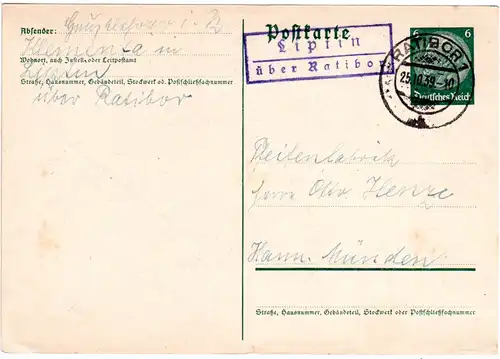 Absender: Hauptlehrer i. R
Klemenza in
Liptin
Wohnort, auch Zustell- oder Leitpostamt
Straße, Hausnummer, Gebäudeteil, Stockwerk od. Postschließfachnummer
über Ratibor
Postkarte
Liptin
über Ratibor
RATIBOR 1
25.10.39.-10
6 6
Deutsches Reich
Feilenfabrik
Herrn Henze
Hann. Münden
Straße, Hausnummer, Gebäudeteil, Stockwerk oder Postschließfachnummer